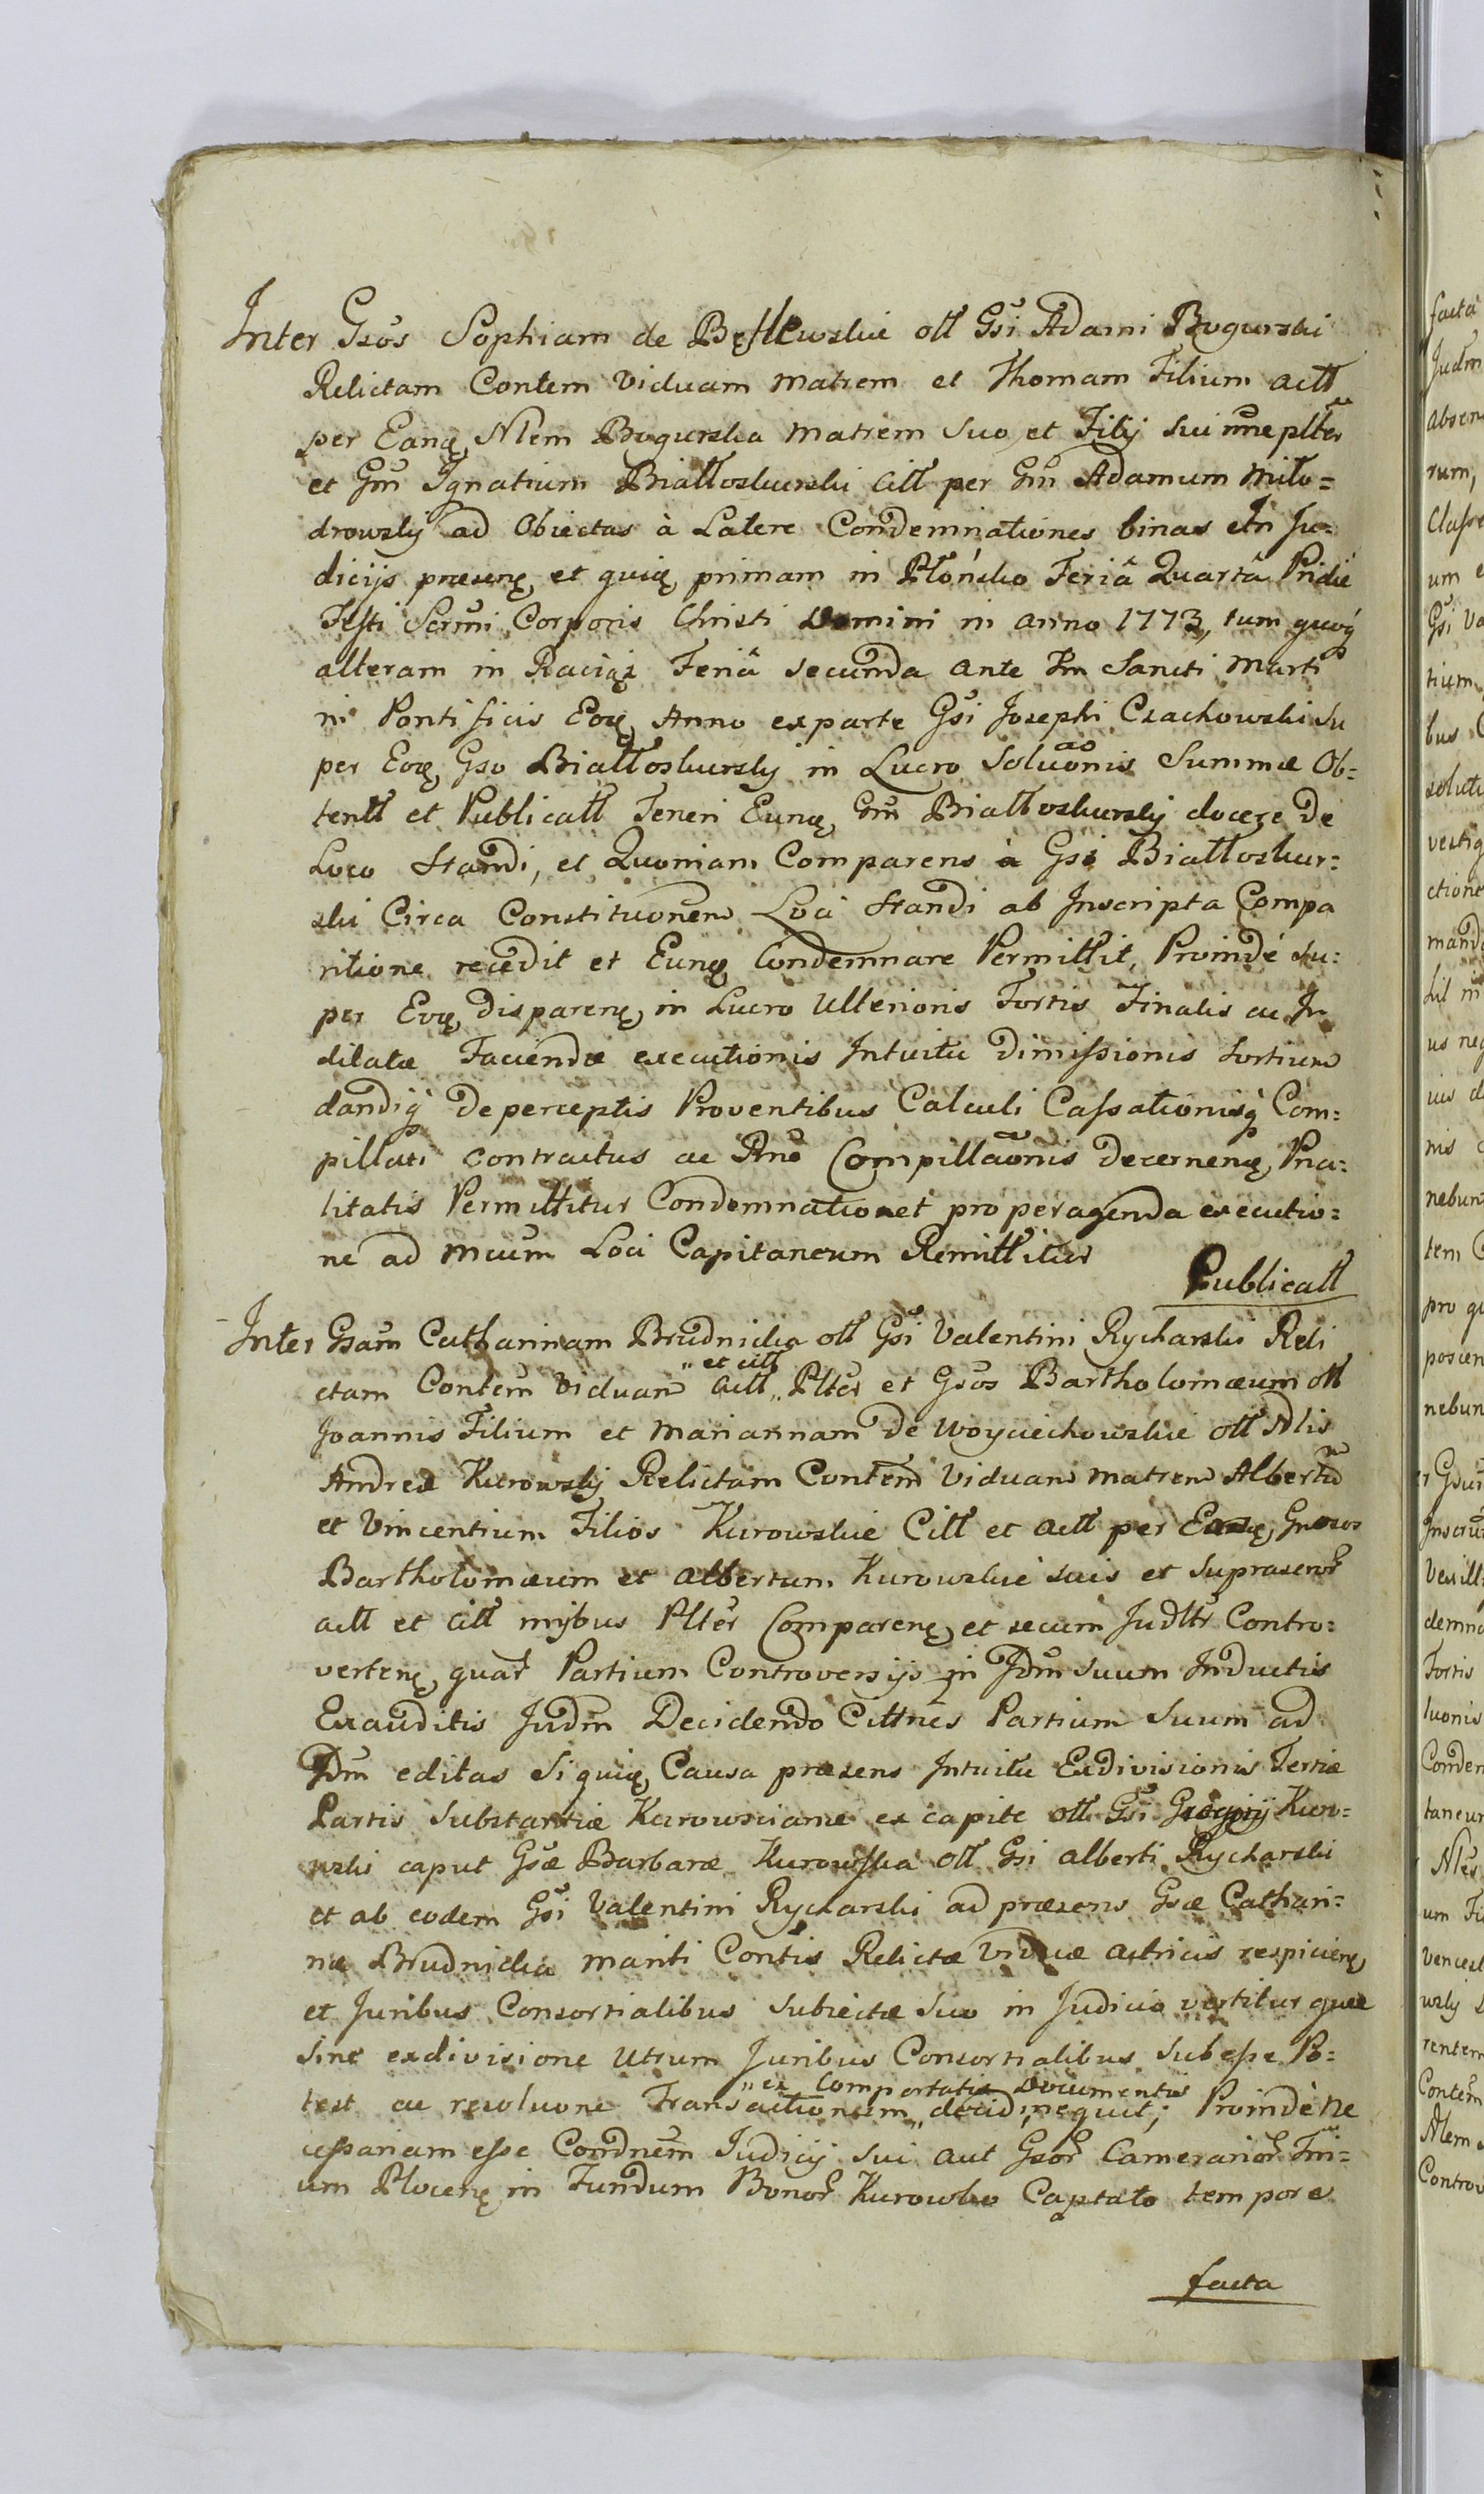 Inter Gsos Sophiam de Bęsłewskie oll Gsi Adami Bogurski
Relictam Contem Viduam Matrem et Thomam Filium act
per Eanq, Nlem Bogurska Matrem Suo et Filij Sui nne plter
et Gm Ignatium Białłoskurski citt per Gm Adamum Miło=
drowsky ad Obiectas à Latere Condemnationes binas in Ju=
dicijs præsenq, et quiq, primam in Płońsko Feriâ Quartâ Pridie
Festi Scrmi Corporis Christi Domini in anno 1773, tum quoq
alteram in Raciąż Feriâ Secunda ante Fm Sancti Marti
ni Pontificis Eoq, Anno ex parte Gsi Josephi Czachowski Su
per Eoq, Gso Białłoskursky in Lucro Soluonis Summæ Ob=
tentt et Publicatt Teneri Eunq, Gm Białłoskursky docere De
Loco Standi, et Quoniam Comparens à Gsi Białłoskur=
ski Circa Constitutionem Loci Standi ab Inscripta Compa
ritione recedit et Eunq, Condemnare Permittit, Proindé Su=
per Eoq, disparenq, in Lucro Ulterioris Fortis Finalis ac In
dilatæ Faciendæ executionis Intuitu Dimissionis Sortium
dandiq De perceptis Proventibus Calculi Cassationisq Com=
pillati Contractus ac Rne Compillaonis Decernenq, Pna=
litatis Permittitur Condemnatio et pro peragenda executio=
ne ad Mcum Loci Capitaneum Remittitur
Publicatt
Inter Gsam Catharinam Brudnicka oll Gsi Valentini Rycharski Reli
ctam Contem Viduam act " et citt " Plter et Gsos Bartholomæum oll
Joannis Filium et Mariannam De Woyciechowskie oll Nlis
Andreæ Kurowsky Relictam Contem Viduam Matrem Albertu
et Vincentium Filios Kurowskie Citt et Act per Eosq, Gnosos
Bartholomæum et Albertum Kurowskie suis et Suprascror
act et citt nnjbus Plter Comparenq, et secum Judltr Contro=
vertenq, quar Partium Controversijs in Jdm Suum Inductis
Exauditis Judm Decidendo Cittnes Partium Suum ad
Jdm editas Si quiq, Causa præsens Intuitu Exdivisionis Tertiæ
Partis Substantiæ Kurowsciane ex capite oll Gsi Gregorij Kuro=
wski caput Gsæ Barbaræ Kurowska oll Gsi Alberti Rycharski
et ab eodem Gsi Valentini Rycharski ad præsens Gsæ Cathari=
næ Brudnicka mariti Contis Relictæ Viduæ actricis respicienq,
et Juribus Consortialibus Subiectæ Suo in Judicio vertitur quæ
Sine exdivisione Utrum Juribus Consortialibus Subesse Po=
test ac resoluone Transactionum " ex Comportatis Documentis " decidi nequit; Proindè Ne
cessariam esse Condnem Judicij Sui aut Gsor Camerarior Fini=
um Plocenq, in Fundum Bonor Kurowko Captato tempore
facta